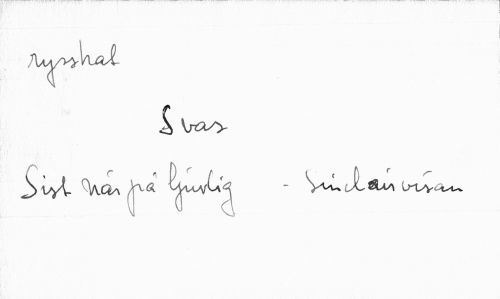 rysshat
Svar
Sist när på ljuvlig - Sinclairvisan